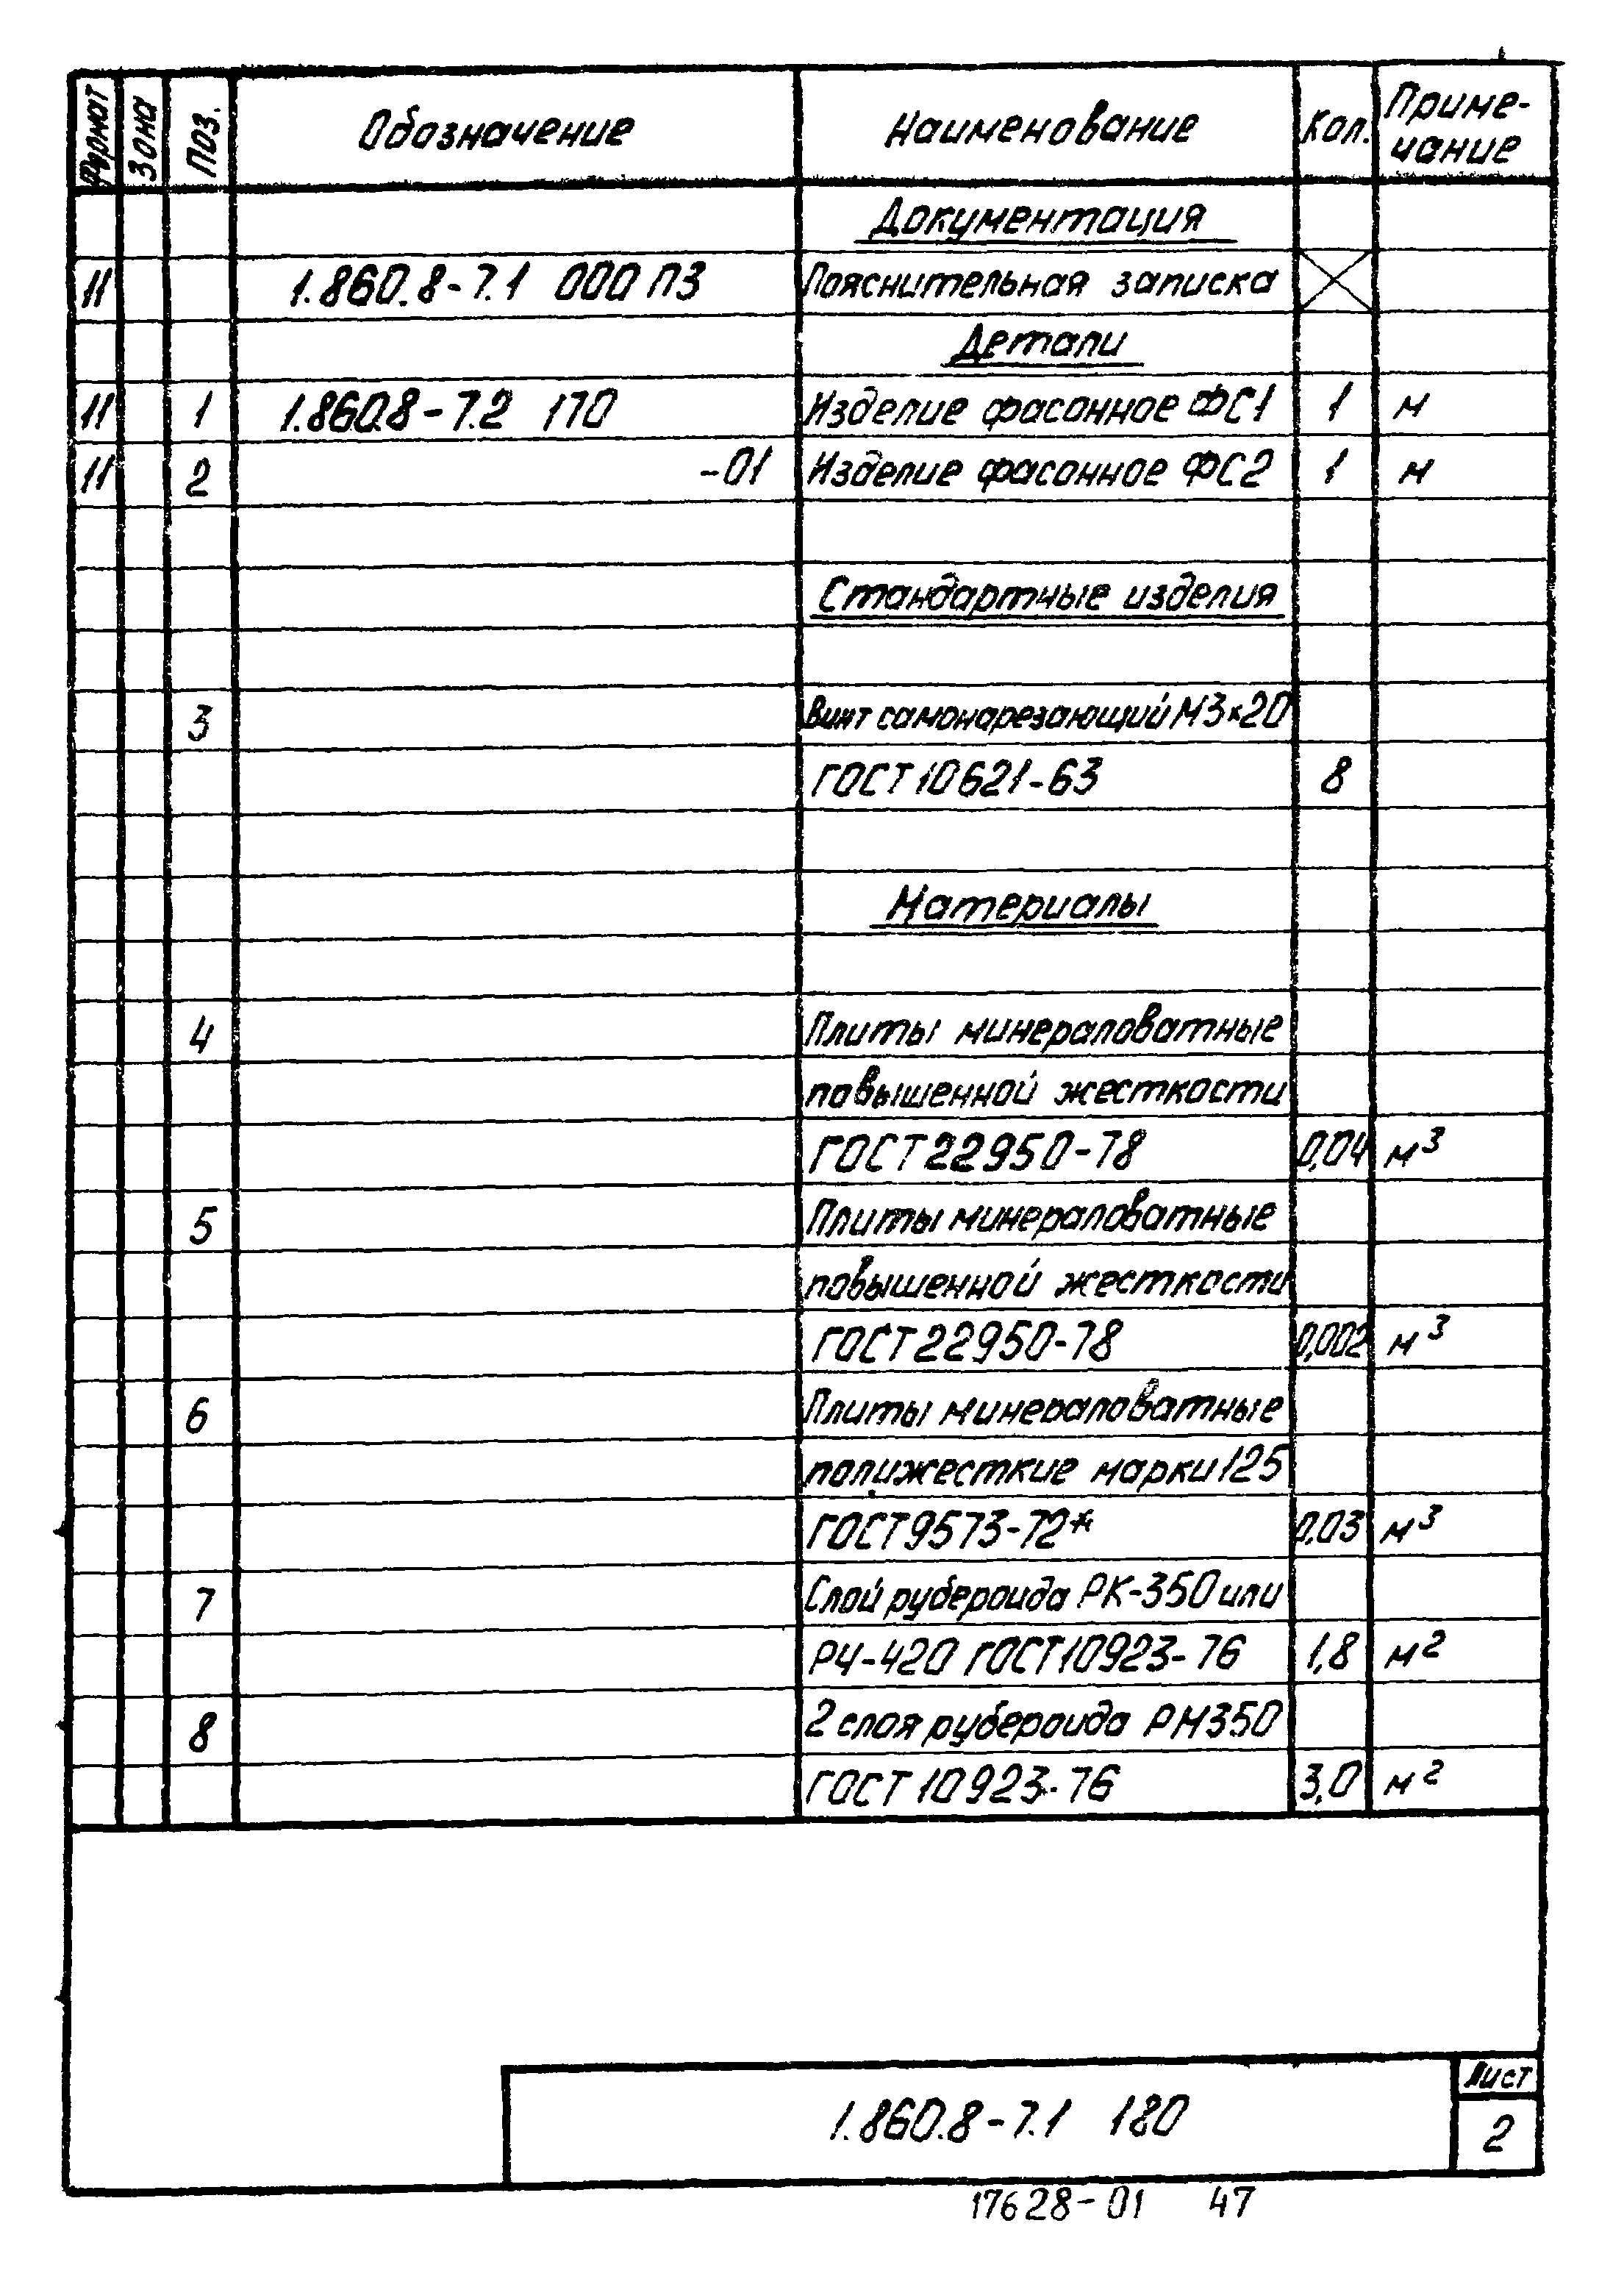 Формат Зона Поз. Обозначение Наименование Кол. Приме-
чание
Документация
11 1.860.8-7.1 000 ПЗ Пояснительная записка
Детали
11 1 1.860.8-7.2 170 Изделие фасонное ФС1 1 м
11 2 -01 Изделие фасонное ФС2 1 м
Стандартные изделия
3 Винт самонарезающий М3×20
ГОСТ 10621-63 8
Материалы
4 Плиты минераловатные
повышенной жесткости
ГОСТ 22950-78 0,04 м³
5 Плиты минераловатные
повышенной жесткости
ГОСТ 22950-78 0,002 м³
6 Плиты минераловатные
полужесткие марки 125
ГОСТ 9573-72* 0,03 м³
7 Слой рубероида РК-350 или
РЧ-420 ГОСТ 10923-76 1,8 м²
8 2 слоя рубероида РМ350
ГОСТ 10923-76 3,0 м²
1.860.8-7.1 180
Лист
2
17628-01 47